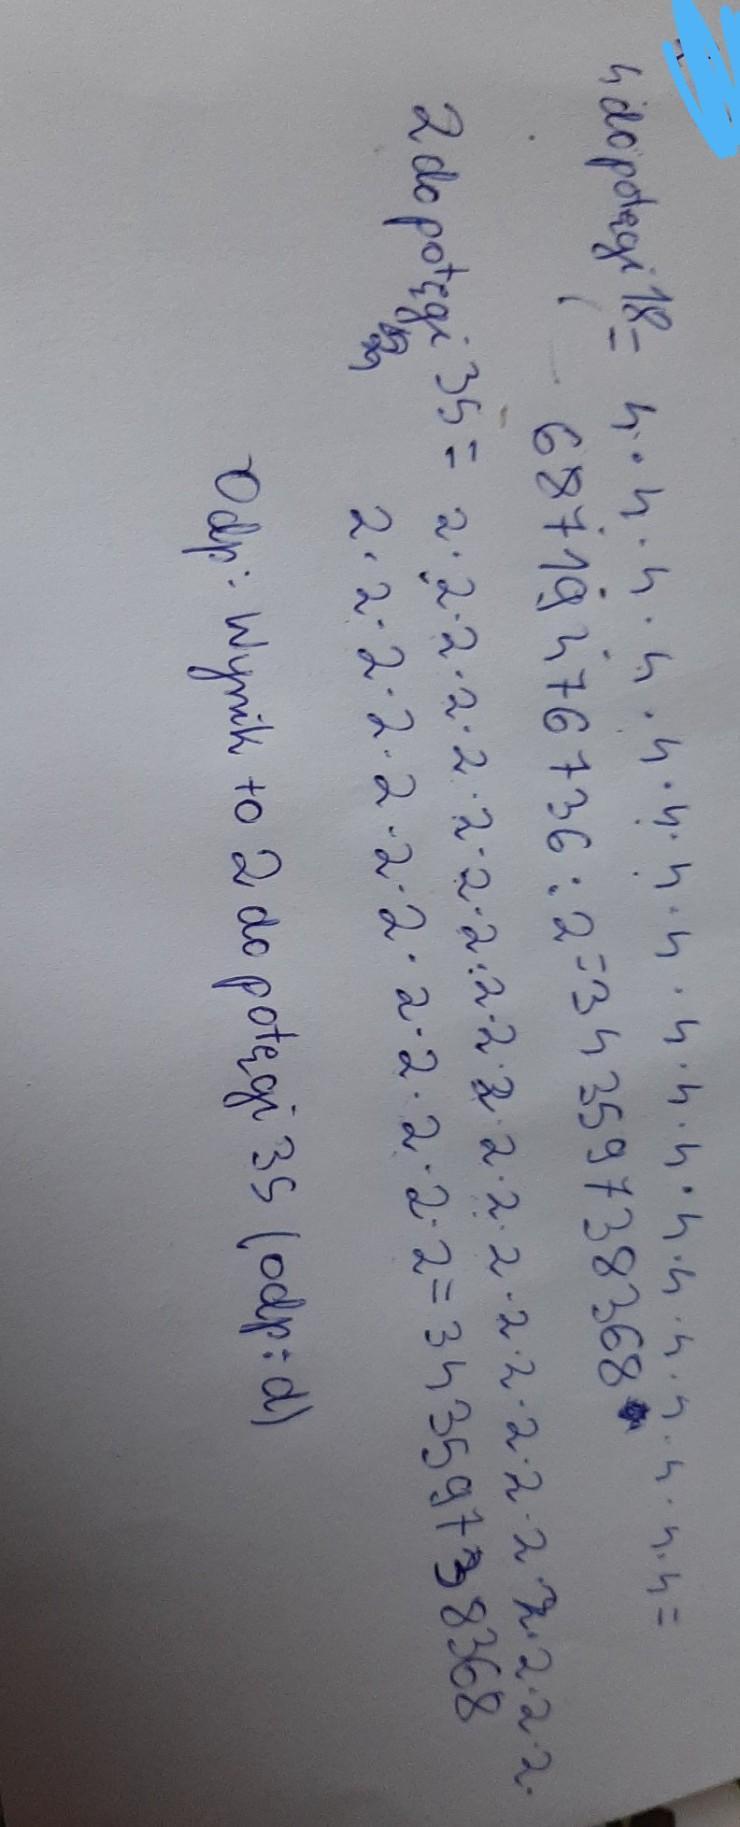 4 do potęgi 18 = 4·4·4·4·4·4·4·4·4·4·4·4·4·4·4·4·4·4=
68719476736:2=34359738368
2 do potęgi 35 = 2·2·2·2·2·2·2·2·2·2·2·2·2·2·2·2·2·2·2·2·2·2·2·
2·2·2·2·2·2·2·2·2·2·2·2=34359738368
Odp: Wynik to 2 do potęgi 35 (odp: d)